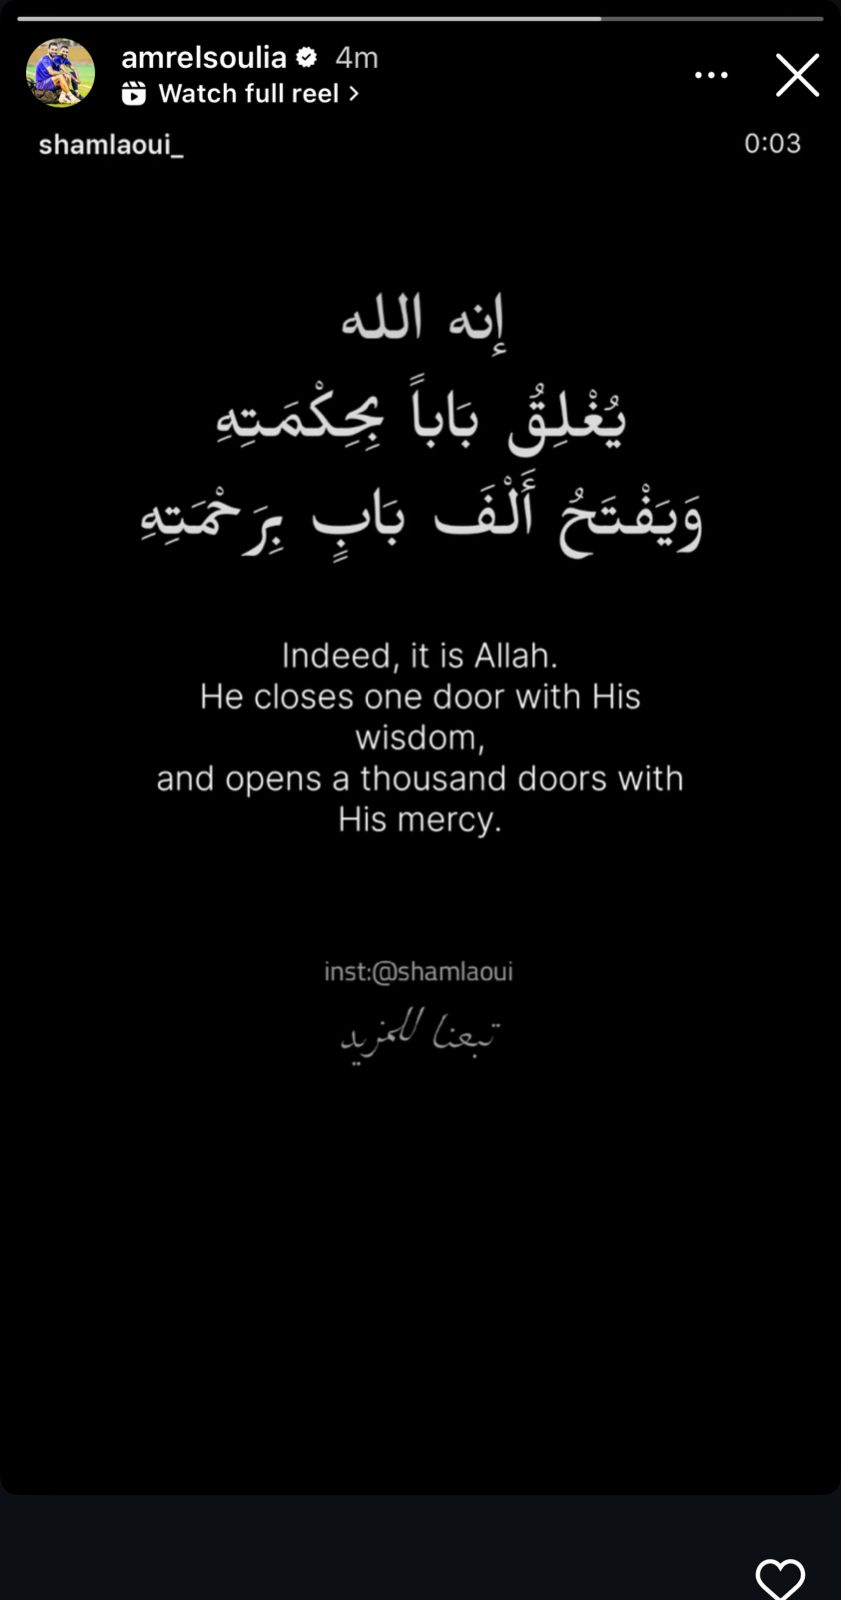 amrelsoulia 4m
Watch full reel >
shamlaoui_ 0:03
إنه الله
يُغْلِقُ بَاباً بِحِكْمَتِهِ
وَيَفْتَحُ أَلْفَ بَابٍ بِرَحْمَتِهِ
Indeed, it is Allah.
He closes one door with His
wisdom,
and opens a thousand doors with
His mercy.
inst:@shamlaoui
تبعنا للمزيد